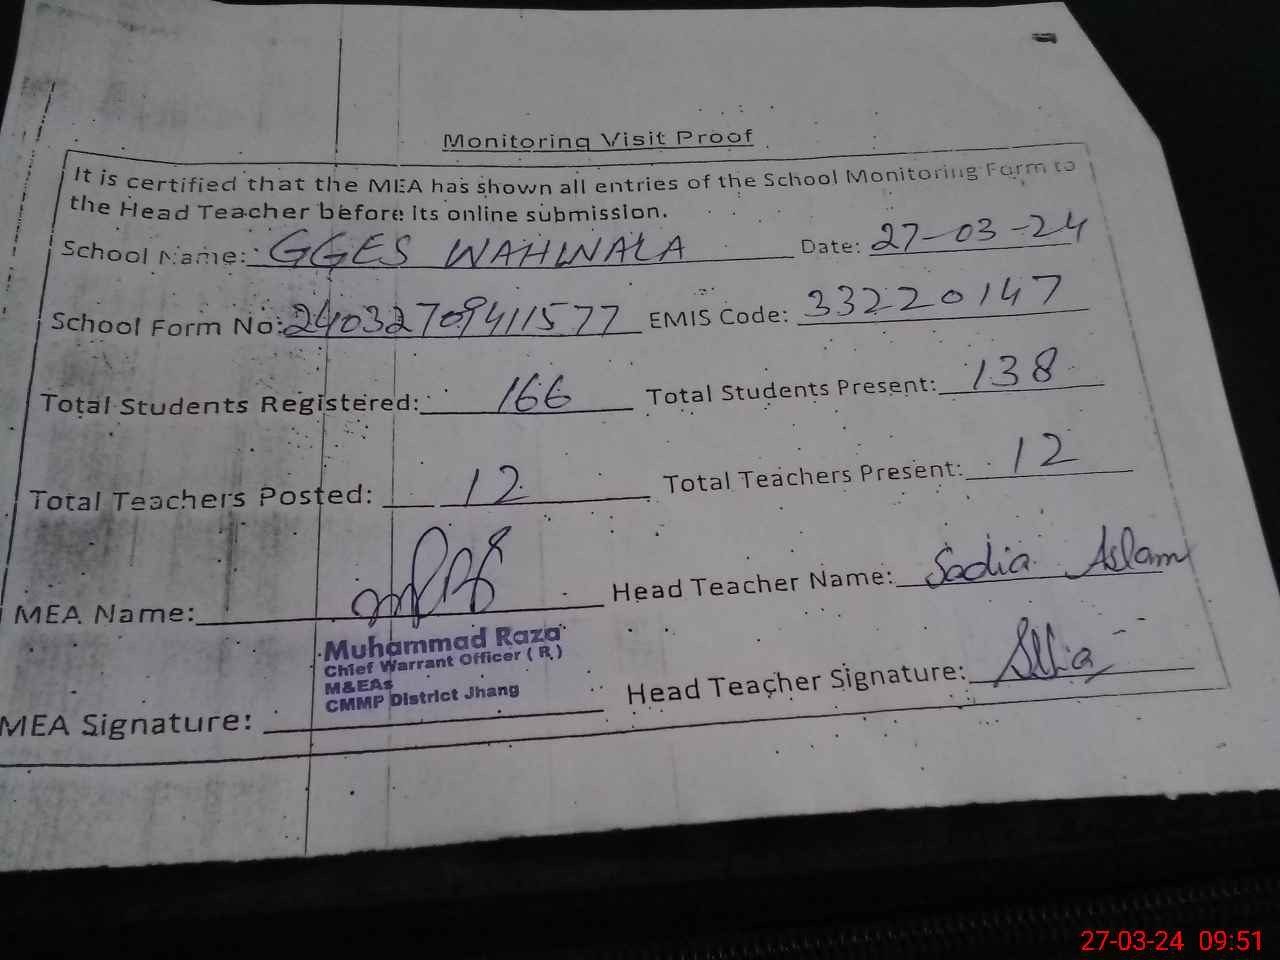 Monitoring Visit Proof
It is certified that the MEA has shown all entries of the School Monitoring Form to
the Head Teacher before its online submission.
School Name: GGES WAHLWALA Date: 27-03-24
School Form No: 24032709411577 EMIS Code: 33220147
Total Students Registered: 166 Total Students Present: 138
Total Teachers Posted: 12 Total Teachers Present: 12
MEA Name: Head Teacher Name: Sadia Aslam
Muhammad Raza
Chief Warrant Officer ( R )
M&EAs
CMMP District Jhang
MEA Signature: Head Teacher Signature:
27-03-24 09:51